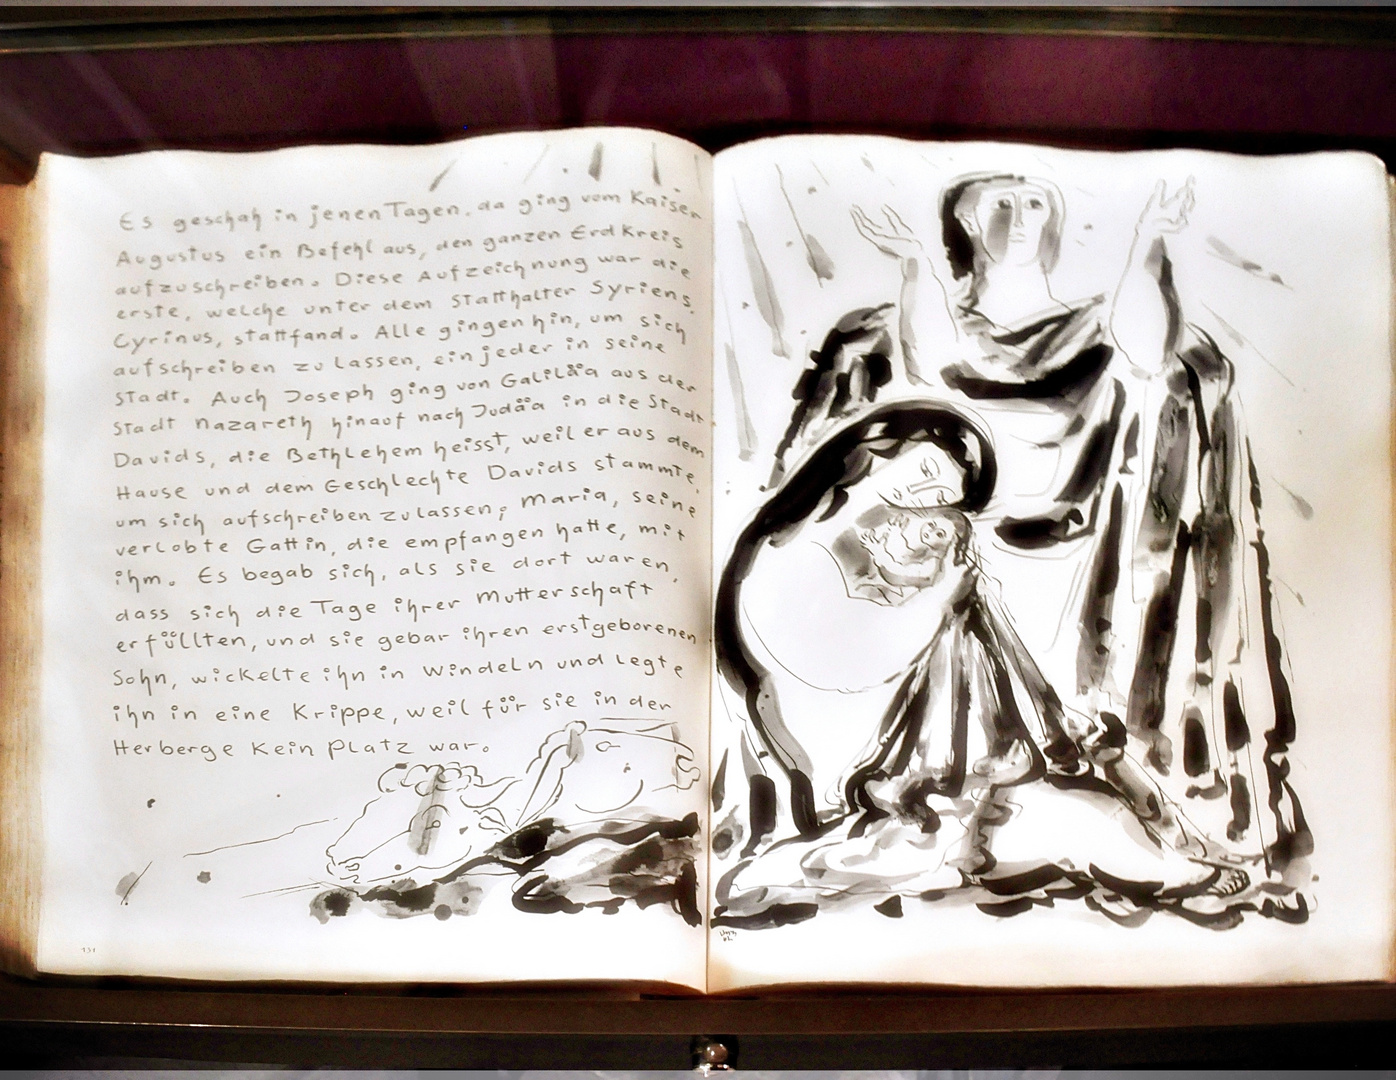 Es geschah in jenen Tagen, da ging vom Kaiser
Augustus ein Befehl aus, den ganzen Erdkreis
aufzuschreiben. Diese Aufzeichnung war die
erste, welche unter dem Statthalter Syriens,
Cyrinus, stattfand. Alle gingen hin, um sich
aufschreiben zu lassen, ein jeder in seine
Stadt. Auch Joseph ging von Galiläa aus der
Stadt Nazareth hinauf nach Judäa in die Stadt
Davids, die Bethlehem heisst, weil er aus dem
Hause und dem Geschlechte Davids stammte,
um sich aufschreiben zu lassen, Maria, seine
verlobte Gattin, die empfangen hatte, mit
ihm. Es begab sich, als sie dort waren,
dass sich die Tage ihrer Mutterschaft
erfüllten, und sie gebar ihren erstgeborenen
Sohn, wickelte ihn in Windeln und legte
ihn in eine Krippe, weil für sie in der
Herberge kein Platz war.